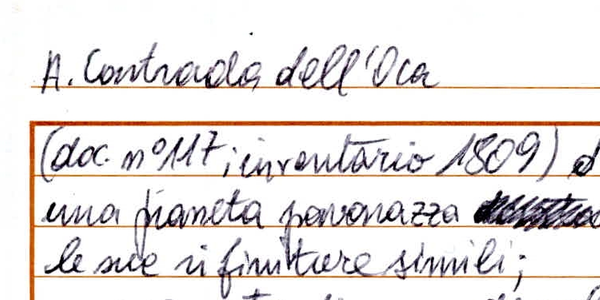 A. Contrada dell'Oca
(doc. n° 117, inventario 1809) d
una pianeta pavonazza
le sue rifiniture simili;